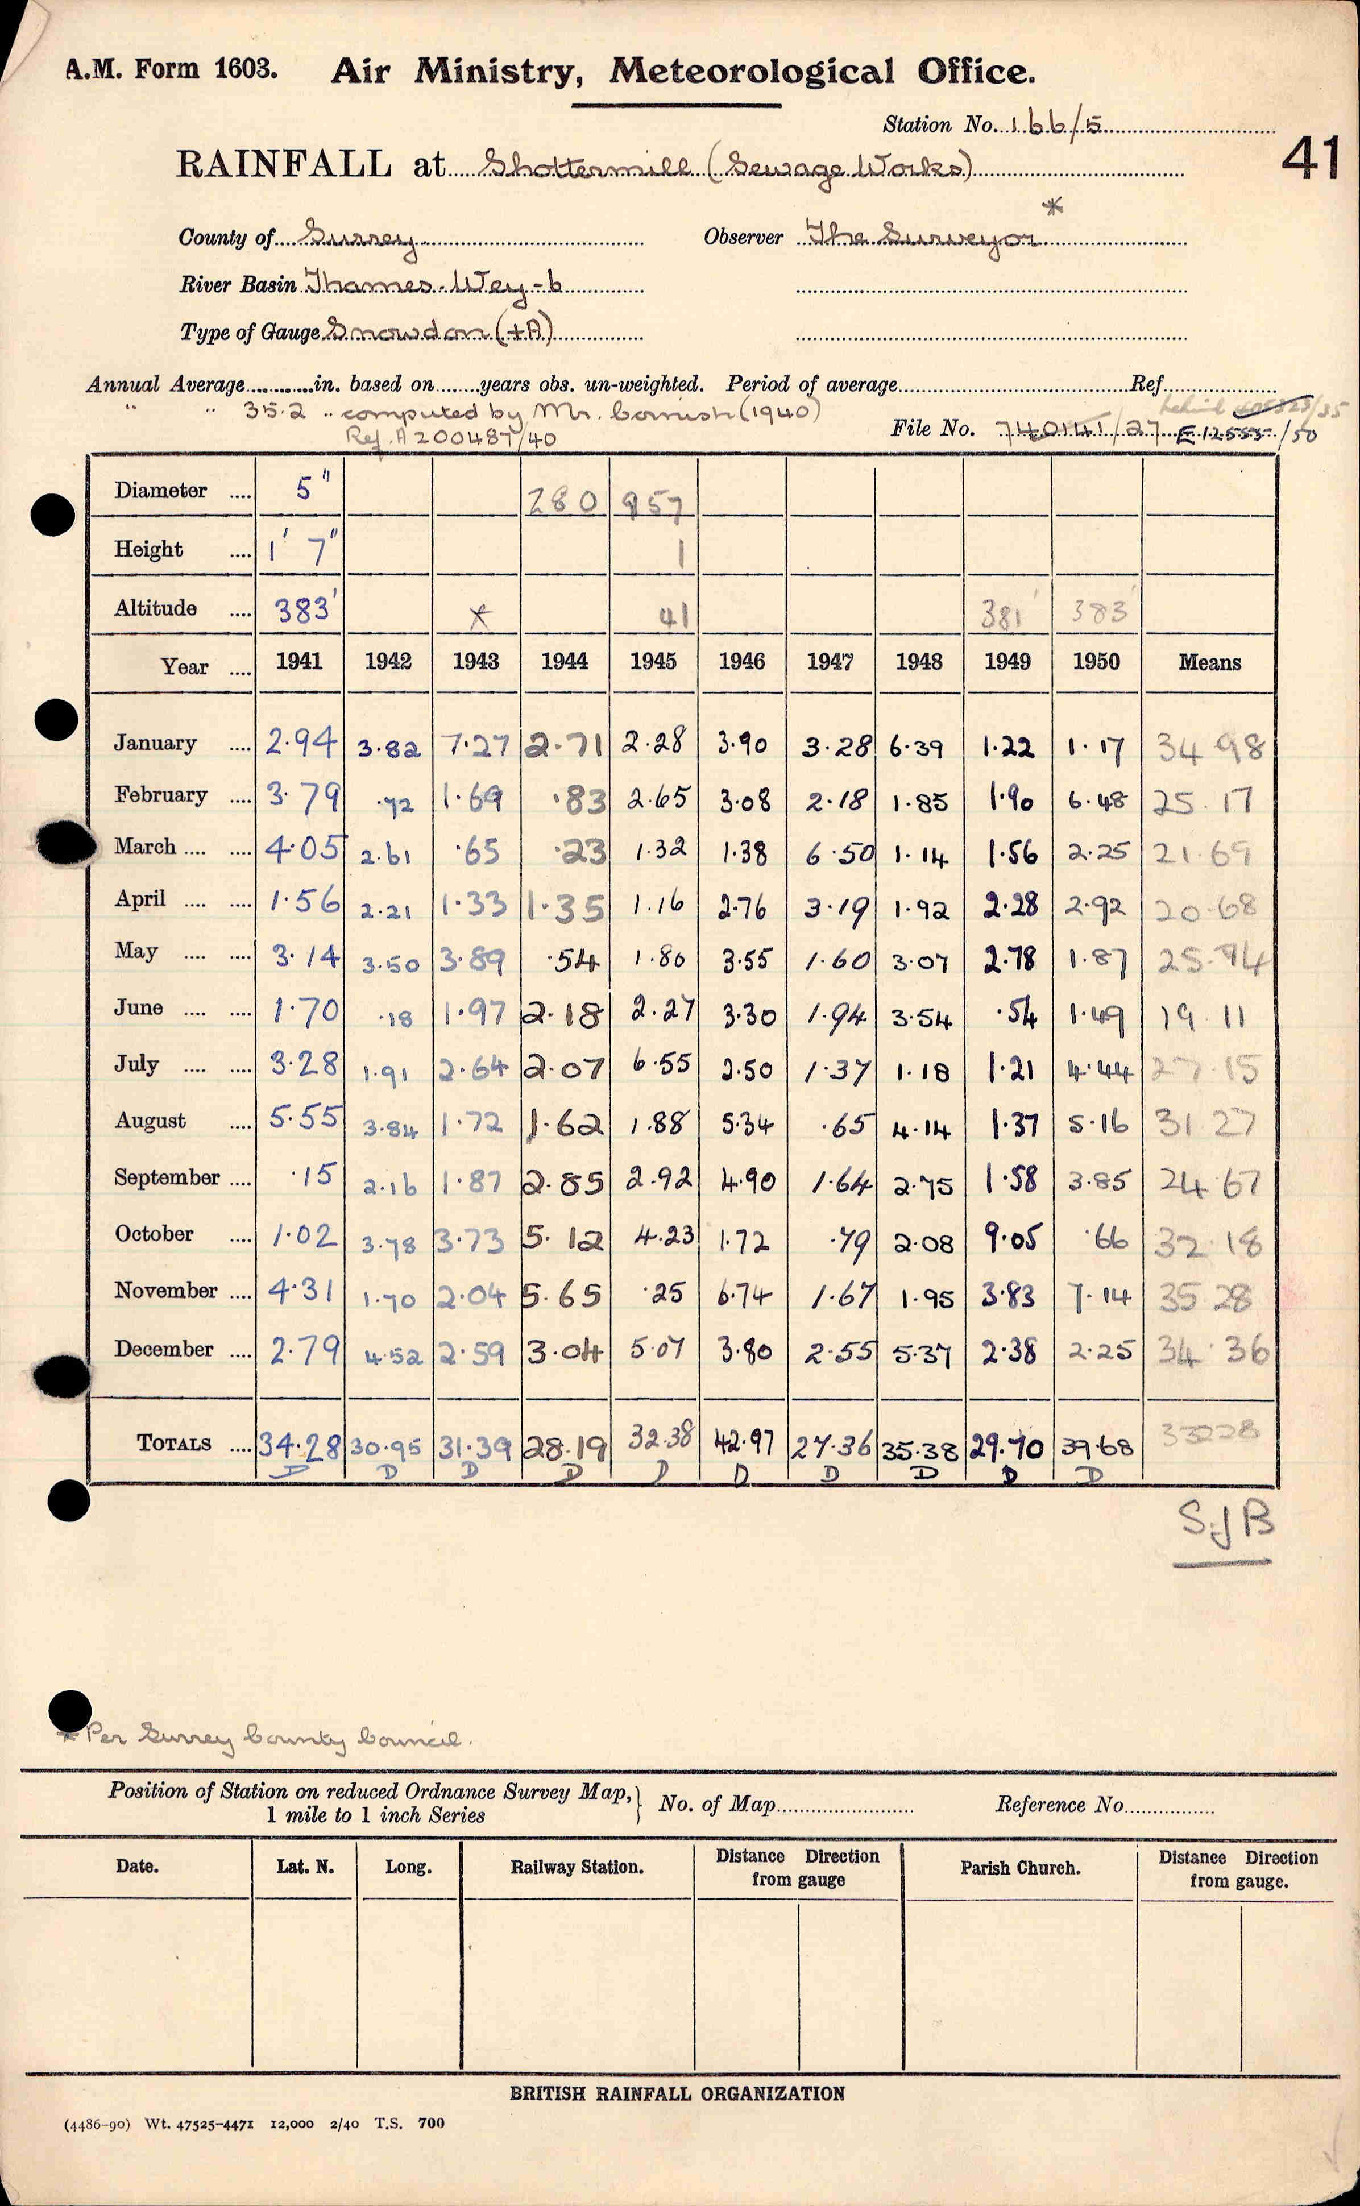 A.M. Form 1603. Air Ministry, Meteorological Office.
Station No. 166/5
41
RAINFALL at Shottermill (Sewage Works)
*
County of Surrey Observer The Surveyor
River Basin Thames-Wey-b
Type of Gauge Snowdon (+A)
Annual Average............in. based on.......years obs. un-weighted. Period of average............Ref............
" " 35.2 " computed by Mr. Cornish (1940)
Ref. A 200487/40
File No. 740141/27 E 12555/50
Diameter .... 5" 280 957
Height .... 1' 7" 1
Altitude .... 383' * 41 381' 383'
Year .... 1941 1942 1943 1944 1945 1946 1947 1948 1949 1950 Means
January .... 2.94 3.82 7.27 2.71 2.28 3.90 3.28 6.39 1.22 1.17 34.98
February .... 3.79 .72 1.69 .83 2.65 3.08 2.18 1.85 1.90 6.48 25.17
March .... .... 4.05 2.61 .65 .23 1.32 1.38 6.50 1.14 1.56 2.25 21.69
April .... .... 1.56 2.21 1.33 1.35 1.16 2.76 3.19 1.92 2.28 2.92 20.68
May .... .... 3.14 3.50 3.89 .54 1.80 3.55 1.60 3.07 2.78 1.87 25.74
June .... .... 1.70 .18 1.97 2.18 2.27 3.30 1.94 3.54 .54 1.49 19.11
July .... .... 3.28 1.91 2.64 2.07 6.55 2.50 1.37 1.18 1.21 4.44 27.15
August .... 5.55 3.84 1.72 1.62 1.88 5.34 .65 4.14 1.37 5.16 31.27
September .... .15 2.16 1.87 2.85 2.92 4.90 1.64 2.75 1.58 3.85 24.67
October .... 1.02 3.78 3.73 5.12 4.23 1.72 .79 2.08 9.05 .66 32.18
November .... 4.31 1.70 2.04 5.65 .25 6.74 1.67 1.95 3.83 7.14 35.28
December .... 2.79 4.52 2.59 3.04 5.07 3.80 2.55 5.37 2.38 2.25 34.36
TOTALS .... 34.28 30.95 31.39 28.19 32.38 42.97 27.36 35.38 29.70 39.68 332.28
D D D D D D D D D D
SJB
* Per Surrey County Council.
Position of Station on reduced Ordnance Survey Map, } No. of Map............ Reference No............
1 mile to 1 inch Series
Date. Lat. N. Long. Railway Station. Distance Direction from gauge Parish Church. Distance Direction from gauge.
BRITISH RAINFALL ORGANIZATION
(4486-90) Wt. 47525-4471 12,000 2/40 T.S. 700